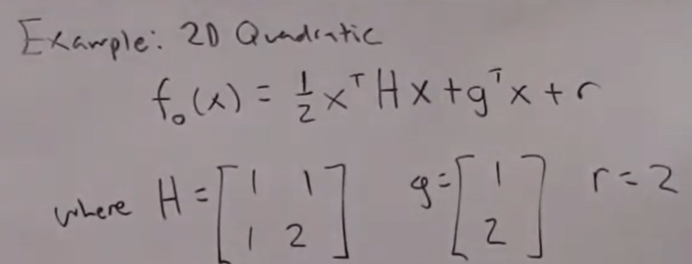 Example: 2D Quadratic
f₀(x) = ½ xᵀ H x + gᵀ x + r
where H = [1 1; 1 2] g = [1; 2] r = 2